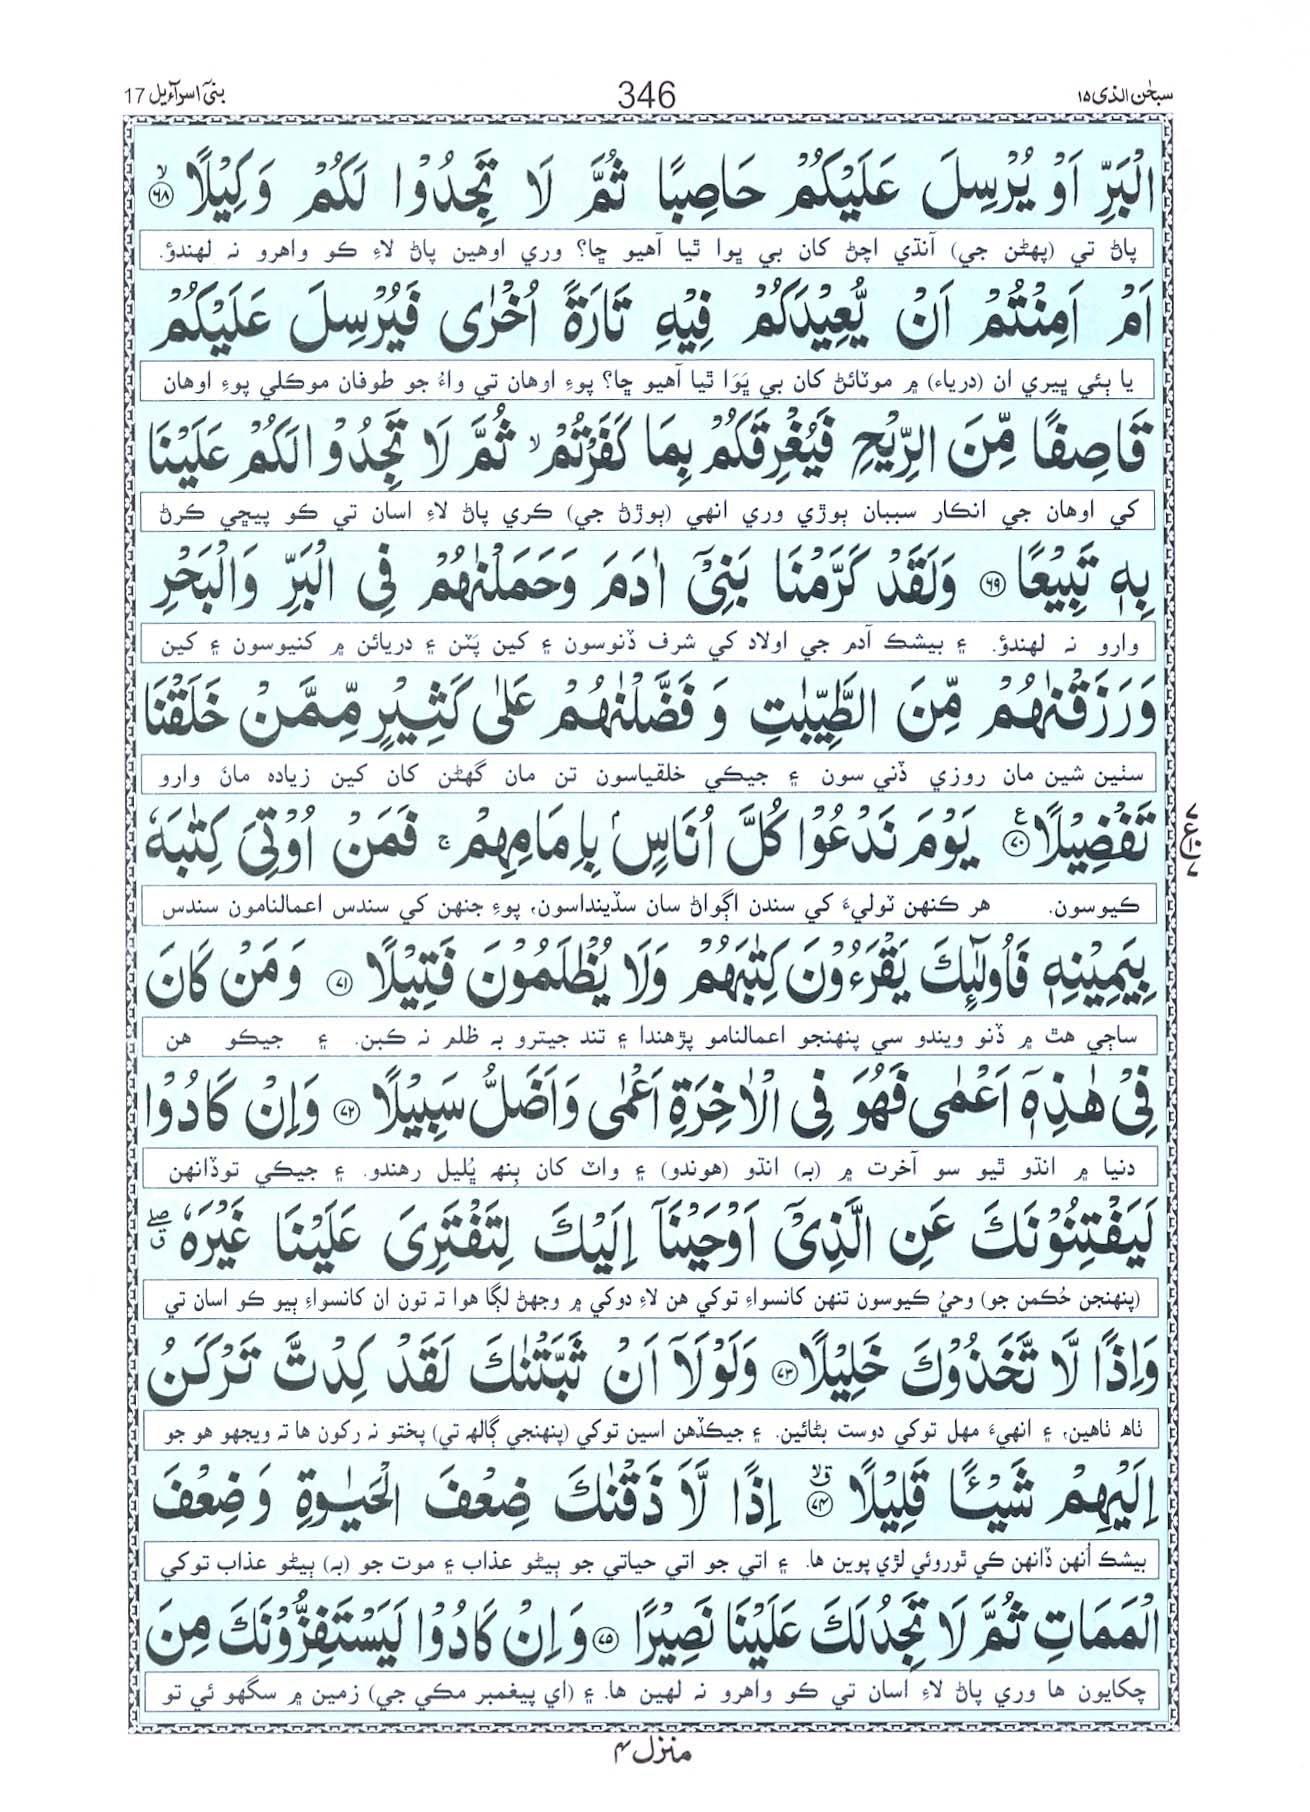 سبحٰن الذی ۱۵
346
بنیٓ اسرآءیل 17
الْبَرِّ اَوْ يُرْسِلَ عَلَيْكُمْ حَاصِبًا ثُمَّ لَا تَجِدُوْا لَكُمْ وَكِيْلًا ۙ﴿۶۸﴾
پاڻ تي (پهڻن جي) آنڌي اچڻ کان بي ڀوا ٿيا آهيو ڇا؟ وري اوهين پاڻ لاءِ ڪو واهرو نہ لهندؤ.
اَمْ اَمِنْتُمْ اَنْ يُّعِيْدَكُمْ فِيْهِ تَارَةً اُخْرٰى فَيُرْسِلَ عَلَيْكُمْ
يا ٻئي ڀيري ان (درياء) ۾ موٽائڻ کان بي ڀَوَا ٿيا آهيو ڇا؟ پوءِ اوهان تي واءُ جو طوفان موڪلي پوءِ اوهان
قَاصِفًا مِّنَ الرِّيْحِ فَيُغْرِقَكُمْ بِمَا كَفَرْتُمْ ۙ ثُمَّ لَا تَجِدُوْا لَكُمْ عَلَيْنَا
کي اوهان جي انڪار سببان ٻوڙي وري انهي (ٻوڙڻ جي) ڪري پاڻ لاءِ اسان تي ڪو پيڇي ڪرڻ
بِهٖ تَبِيْعًا ﴿۶۹﴾ وَلَقَدْ كَرَّمْنَا بَنِيْٓ اٰدَمَ وَحَمَلْنٰهُمْ فِي الْبَرِّ وَالْبَحْرِ
وارو نہ لهندؤ. ۽ بيشڪ آدم جي اولاد کي شرف ڏنوسون ۽ کين پَٽن ۽ دريائن ۾ کنيوسون ۽ کين
وَرَزَقْنٰهُمْ مِّنَ الطَّيِّبٰتِ وَفَضَّلْنٰهُمْ عَلٰى كَثِيْرٍ مِّمَّنْ خَلَقْنَا
سٺين شين مان روزي ڏني سون ۽ جيڪي خلقياسون تن مان گهڻن کان کين زياده مان وارو
تَفْضِيْلًا ﴿۷۰﴾ ع يَوْمَ نَدْعُوْا كُلَّ اُنَاسٍۭ بِاِمَامِهِمْ ۚ فَمَنْ اُوْتِيَ كِتٰبَهٗ
ڪيوسون. هر ڪنهن ٽوليءَ کي سندن اڳواڻ سان سڏينداسون، پوءِ جنهن کي سندس اعمالنامون سندس
بِيَمِيْنِهٖ فَاُولٰٓئِكَ يَقْرَءُوْنَ كِتٰبَهُمْ وَلَا يُظْلَمُوْنَ فَتِيْلًا ﴿۷۱﴾ وَمَنْ كَانَ
ساڄي هٿ ۾ ڏنو ويندو سي پنهنجو اعمالنامو پڙهندا ۽ تند جيترو بہ ظلم نہ ڪبن. ۽ جيڪو هن
فِيْ هٰذِهٖٓ اَعْمٰى فَهُوَ فِي الْاٰخِرَةِ اَعْمٰى وَاَضَلُّ سَبِيْلًا ﴿۷۲﴾ وَاِنْ كَادُوْا
دنيا ۾ انڌو ٿيو سو آخرت ۾ (بہ) انڌو (هوندو) ۽ واٽ کان بِنهہ ڀُليل رهندو. ۽ جيڪي توڏانهن
لَيَفْتِنُوْنَكَ عَنِ الَّذِيْٓ اَوْحَيْنَآ اِلَيْكَ لِتَفْتَرِيَ عَلَيْنَا غَيْرَهٗ ۖق
(پنهنجن حُڪمن جو) وحيُ ڪيوسون تنهن کانسواءِ توکي هن لاءِ دوکي ۾ وجهڻ لڳا هوا تہ تون ان کانسواءِ ٻيو ڪو اسان تي
وَاِذًا لَّا تَّخَذُوْكَ خَلِيْلًا ﴿۷۳﴾ وَلَوْلَآ اَنْ ثَبَّتْنٰكَ لَقَدْ كِدْتَّ تَرْكَنُ
ٺاھ ٺاهين، ۽ انهيءَ مهل توکي دوست بڻائين. ۽ جيڪڏهن اسين توکي (پنهنجي ڳالھ تي) پختو نہ رکون ها تہ ويجهو هو جو
اِلَيْهِمْ شَيْـًٔا قَلِيْلًا ۙق﴿۷۴﴾ اِذًا لَّاَذَقْنٰكَ ضِعْفَ الْحَيٰوةِ وَضِعْفَ
بيشڪ اُنهن ڏانهن ڪي ٿوروئي لڙي پوين ها. ۽ اتي جو اتي حياتي جو ٻيڻو عذاب ۽ موت جو (بہ) ٻيڻو عذاب توکي
الْمَمَاتِ ثُمَّ لَا تَجِدُ لَكَ عَلَيْنَا نَصِيْرًا ﴿۷۵﴾ وَاِنْ كَادُوْا لَيَسْتَفِزُّوْنَكَ مِنَ
چکايون ها وري پاڻ لاءِ اسان تي ڪو واهرو نہ لهين ها. ۽ (اي پيغمبر مڪي جي) زمين ۾ سگهو ئي تو
منزل ۴